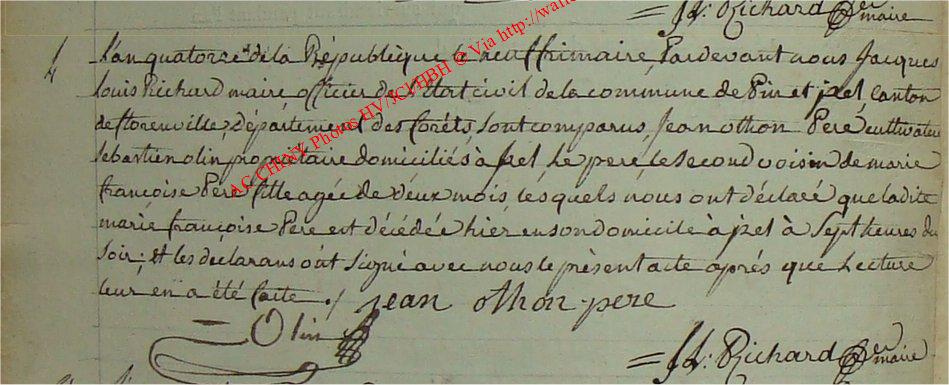 = JL: Richard maire
4 L'an quatorze de la République le neuf frimaire, Pardevant nous Jacques
Louis Richard maire, officier de l'Etat civil de la commune de Pin et izel, canton
de florenville, département des forêts, sont comparus, Jean othon Pere cultivateur
Sebastien olin propriétaire domiciliés à izel, le pere, le Second voisin de marie
françoise Père fille agée de deux mois, lesquels nous ont déclaré que ladite
marie françoise Père est décédée hier en son domicile à izel à Sept heures du
Soir; Et les declarans ont Signé avec nous le présent acte aprés que Lecture
leur en a été faite ./ jean othon pere
Olin
= JL: Richard maire
AC CHINY Photos HV/JCVHBH @ Via http://wafl